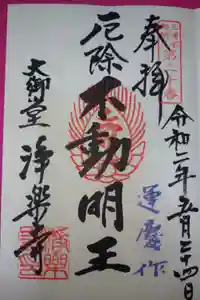 奉拝
令和二年五月二十四日
厄除
不動明王
運慶作
大御堂
浄楽寺